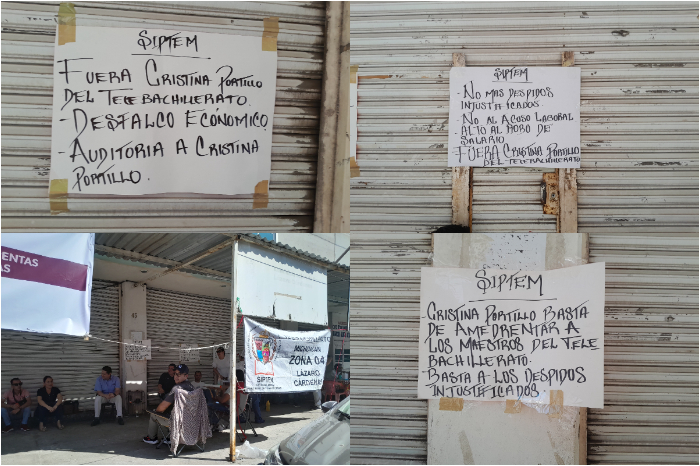 SIPTEM
FUERA CRISTINA PORTILLO
DEL TELEBACHILLERATO.
- DESFALCO ECONÓMICO
- AUDITORIA A CRISTINA
PORTILLO.
SIPTEM
- NO MAS DESPIDOS
INJUSTIFICADOS
- NO AL ACOSO LABORAL
ALTO AL ROBO DE
SALARIO
- FUERA CRISTINA PORTILLO
DEL TELEBACHILLERATO
ENTAS
AS
MICHOACAN
ZONA 04
LÁZARO
CÁRDENAS
SIPTEM
SIPTEM
CRISTINA PORTILLO BASTA
DE AMEDRENTAR A
LOS MAESTROS DEL TELE
BACHILLERATO.
BASTA A LOS DESPIDOS
INJUSTIFICADOS